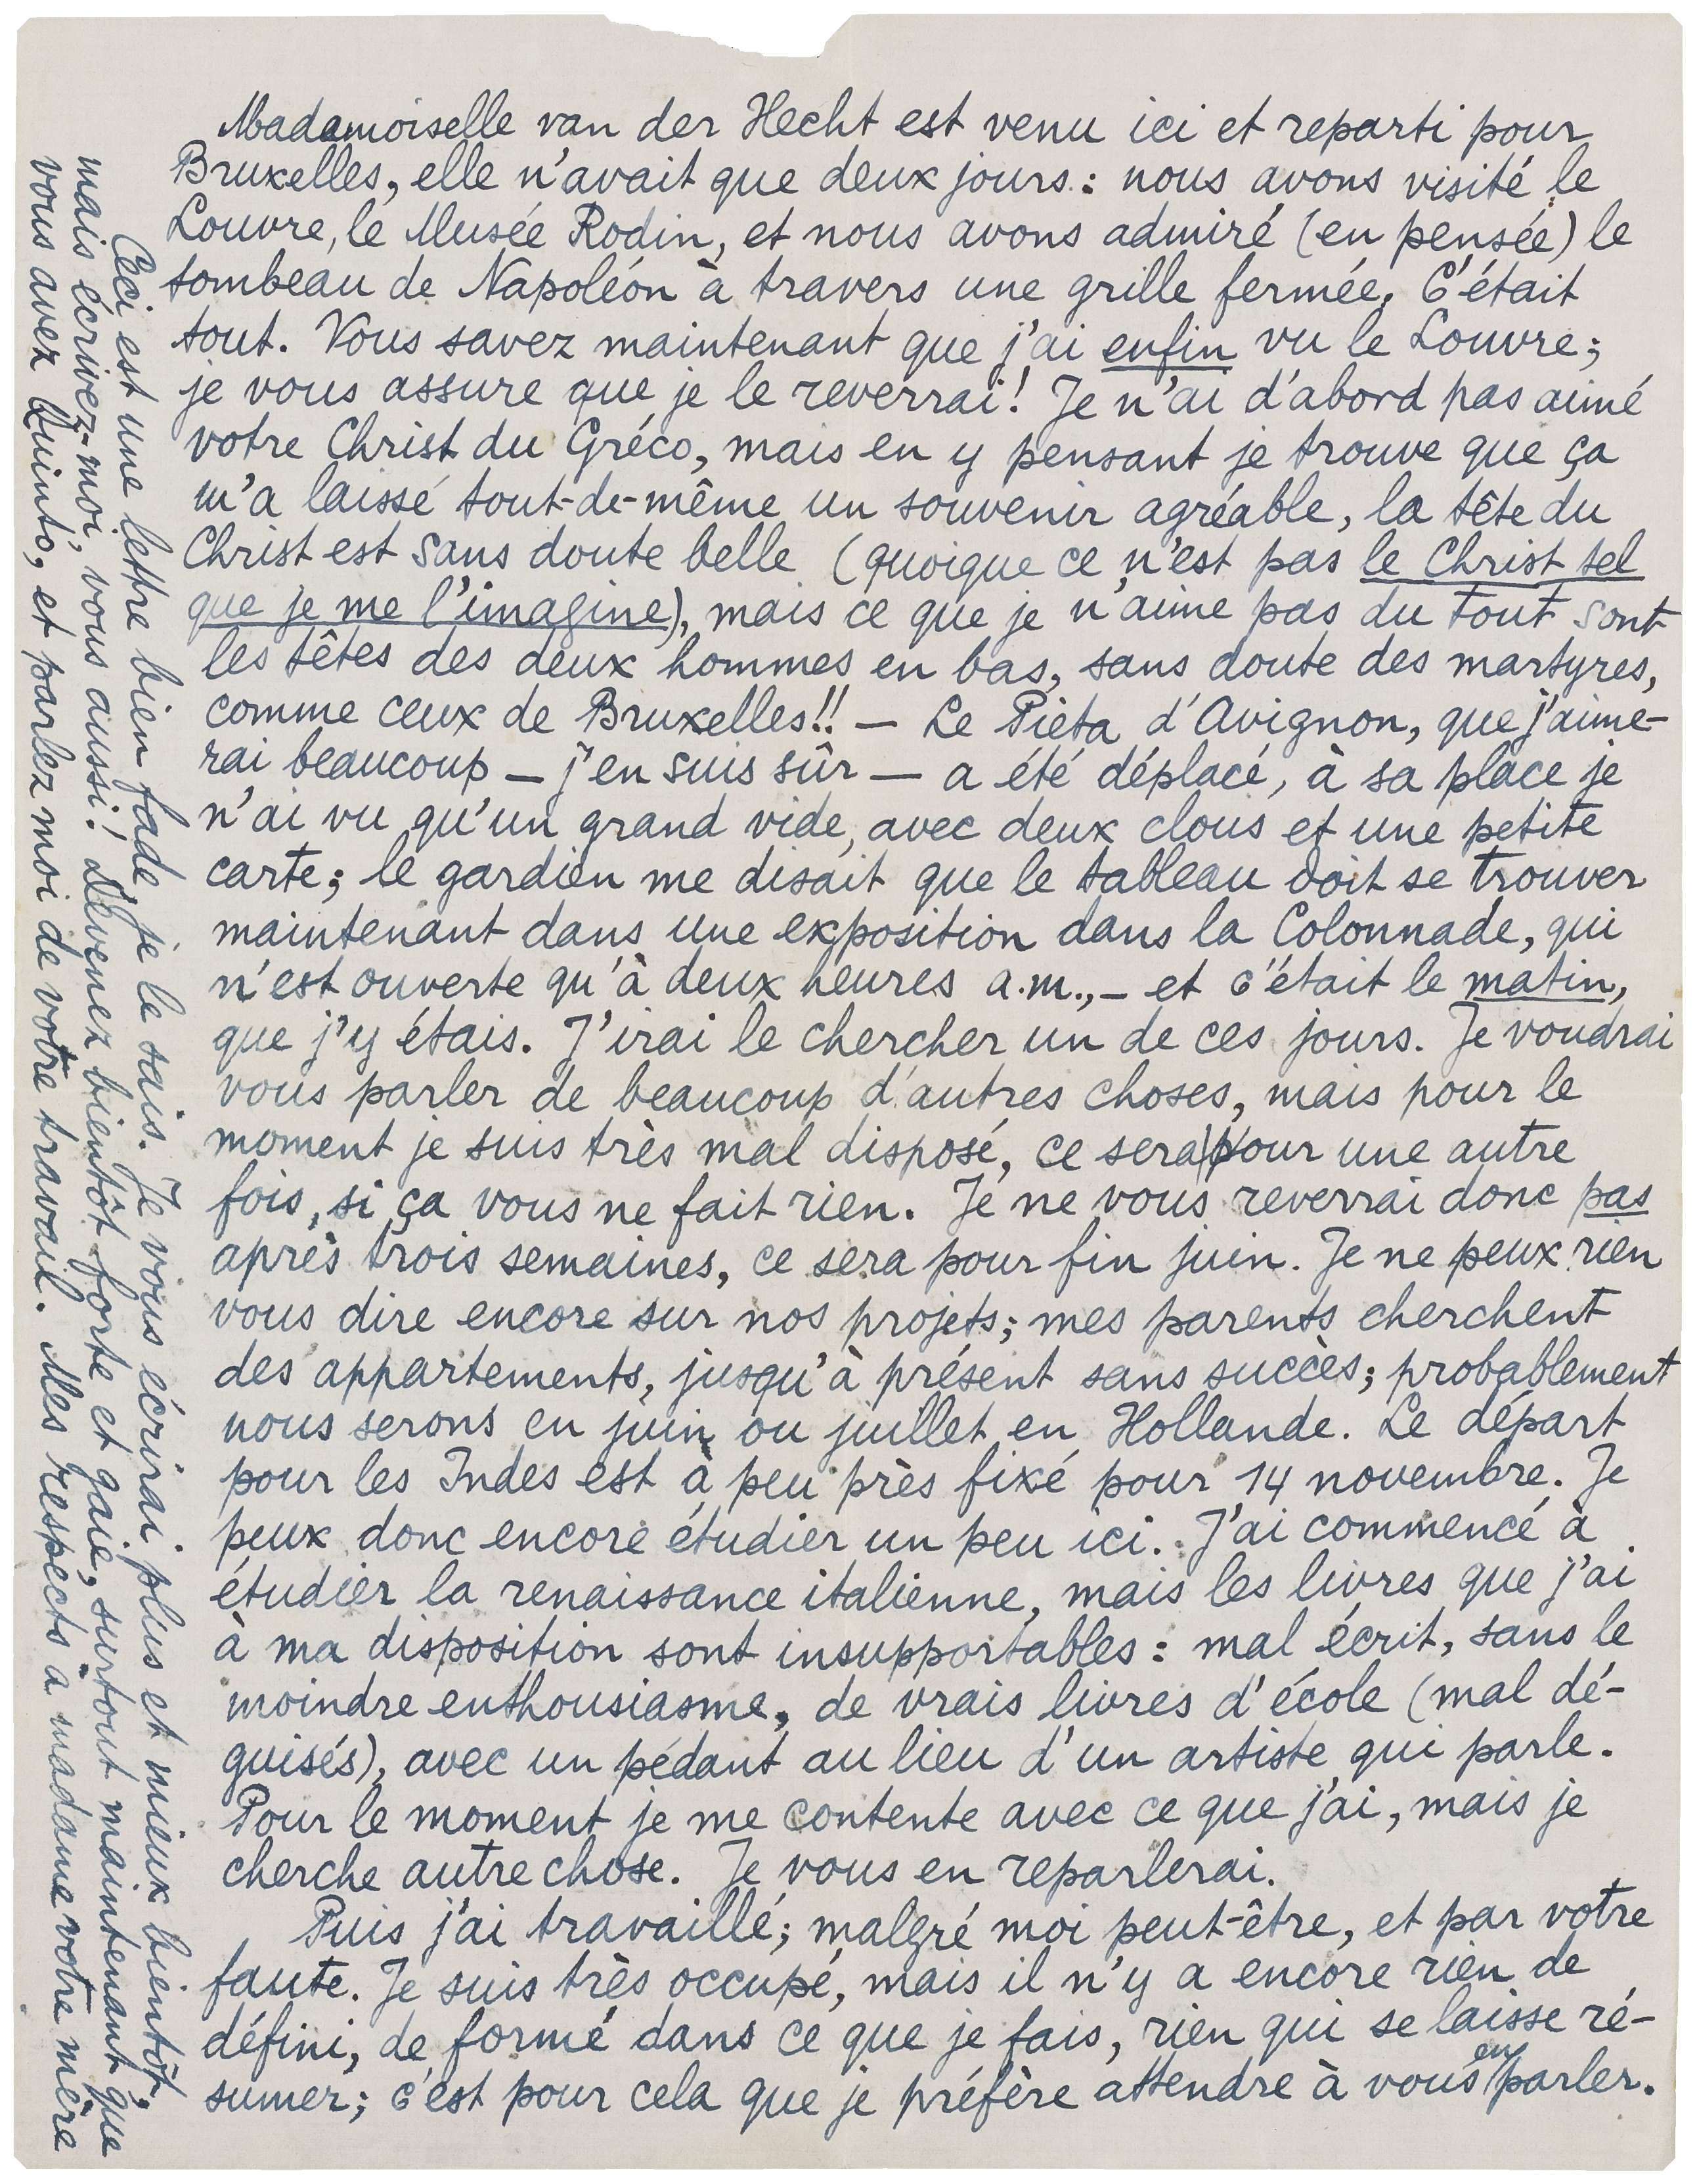 Madamoiselle van der Hecht est venu ici et reparti pour
Bruxelles, elle n'avait que deux jours : nous avons visité le
Louvre, le Musée Rodin, et nous avons admiré (en pensée) le
tombeau de Napoléon à travers une grille fermée. C'était
tout. Vous savez maintenant que j'ai enfin vu le Louvre;
je vous assure que je le reverrai! Je n'ai d'abord pas aimé
votre Christ du Gréco, mais en y pensant je trouve que ça
m'a laissé tout-de-même un souvenir agréable, la tête du
Christ est sans doute belle (quoique ce n'est pas le Christ tel
que je me l'imagine), mais ce que je n'aime pas du tout sont
les têtes des deux hommes en bas, sans doute des martyres,
comme ceux de Bruxelles!! — Le Pieta d'Avignon, que j'aime-
rai beaucoup — j'en suis sûr — a été déplacé, à sa place je
n'ai vu qu'un grand vide, avec deux clous et une petite
carte; le gardien me disait que le tableau doit se trouver
maintenant dans une exposition dans la Colonnade, qui
n'est ouverte qu'à deux heures a.m., — et c'était le matin,
que j'y étais. J'irai le chercher un de ces jours. Je voudrai
vous parler de beaucoup d'autres choses, mais pour le
moment je suis très mal disposé, ce sera pour une autre
fois, si ça vous ne fait rien. Je ne vous reverrai donc pas
après trois semaines, ce sera pour fin juin. Je ne peux rien
vous dire encore sur nos projets; mes parents cherchent
des appartements, jusqu'à présent sans succès; probablement
nous serons en juin ou juillet en Hollande. Le départ
pour les Indes est à peu près fixé pour 14 novembre. Je
peux donc encore étudier un peu ici. J'ai commencé à
étudier la renaissance italienne, mais les livres que j'ai
à ma disposition sont insupportables : mal écrit, sans le
moindre enthousiasme, de vrais livres d'école (mal dé-
guisés), avec un pédant au lieu d'un artiste qui parle.
Pour le moment je me contente avec ce que j'ai, mais je
cherche autre chose. Je vous en reparlerai.
Puis j'ai travaillé; malgré moi peut-être, et par votre
faute. Je suis très occupé, mais il n'y a encore rien de
défini, de formé dans ce que je fais, rien qui se laisse ré-
sumer; c'est pour cela que je préfère attendre à vous en parler.
Ceci est une lettre bien fade je le sais. Je vous écrirai plus et mieux bientôt,
mais écrivez-moi, vous aussi! Devenez bientôt forte et gaie, surtout maintenant que
vous avez Quinto, et parlez moi de votre travail. Mes respects à madame votre mère